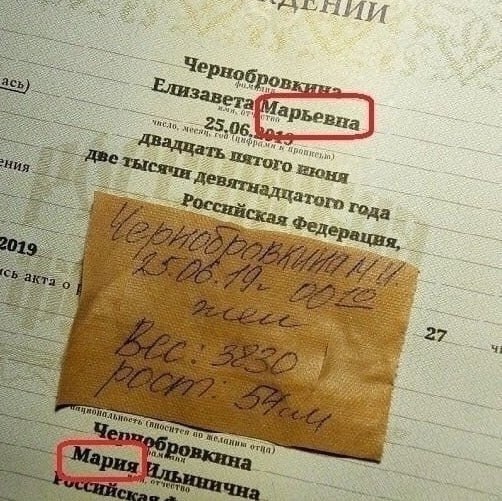 ДЕНИИ
Чернобровкина
фамилия
ась)
Елизавета Марьевна
имя, отчество
25.06.2019
число, месяц, год (цифрами и прописью)
двадцать пятого июня
две тысячи девятнадцатого года
ения
Российская Федерация,
2019
Чернобровкина М.И.
25.06.19г 00 10
жен
Вес: 3830
рост: 54см
ись акта о
27
национальность (вносится по желанию отца)
Чернобровкина
фамилия
Мария Ильинична
имя, отчество
Российская